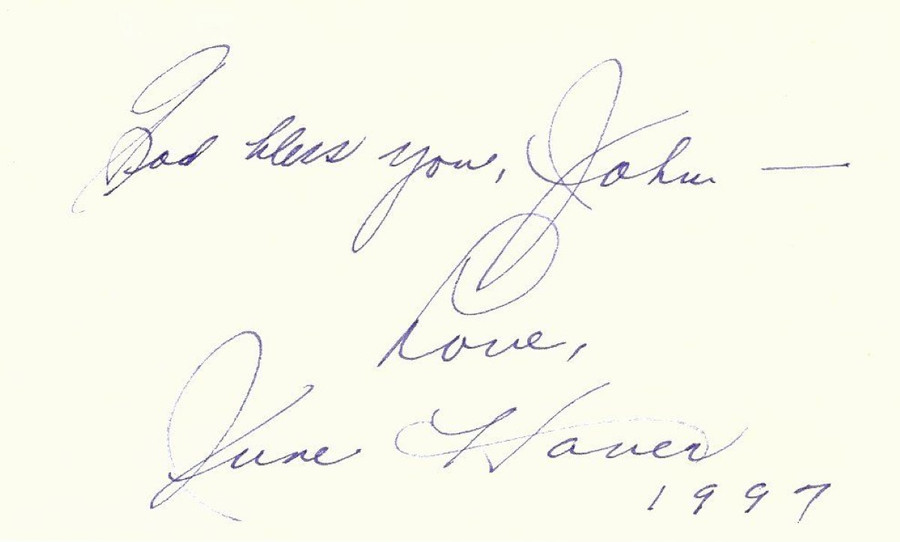 God bless you, John —
Love,
June Haver
1997